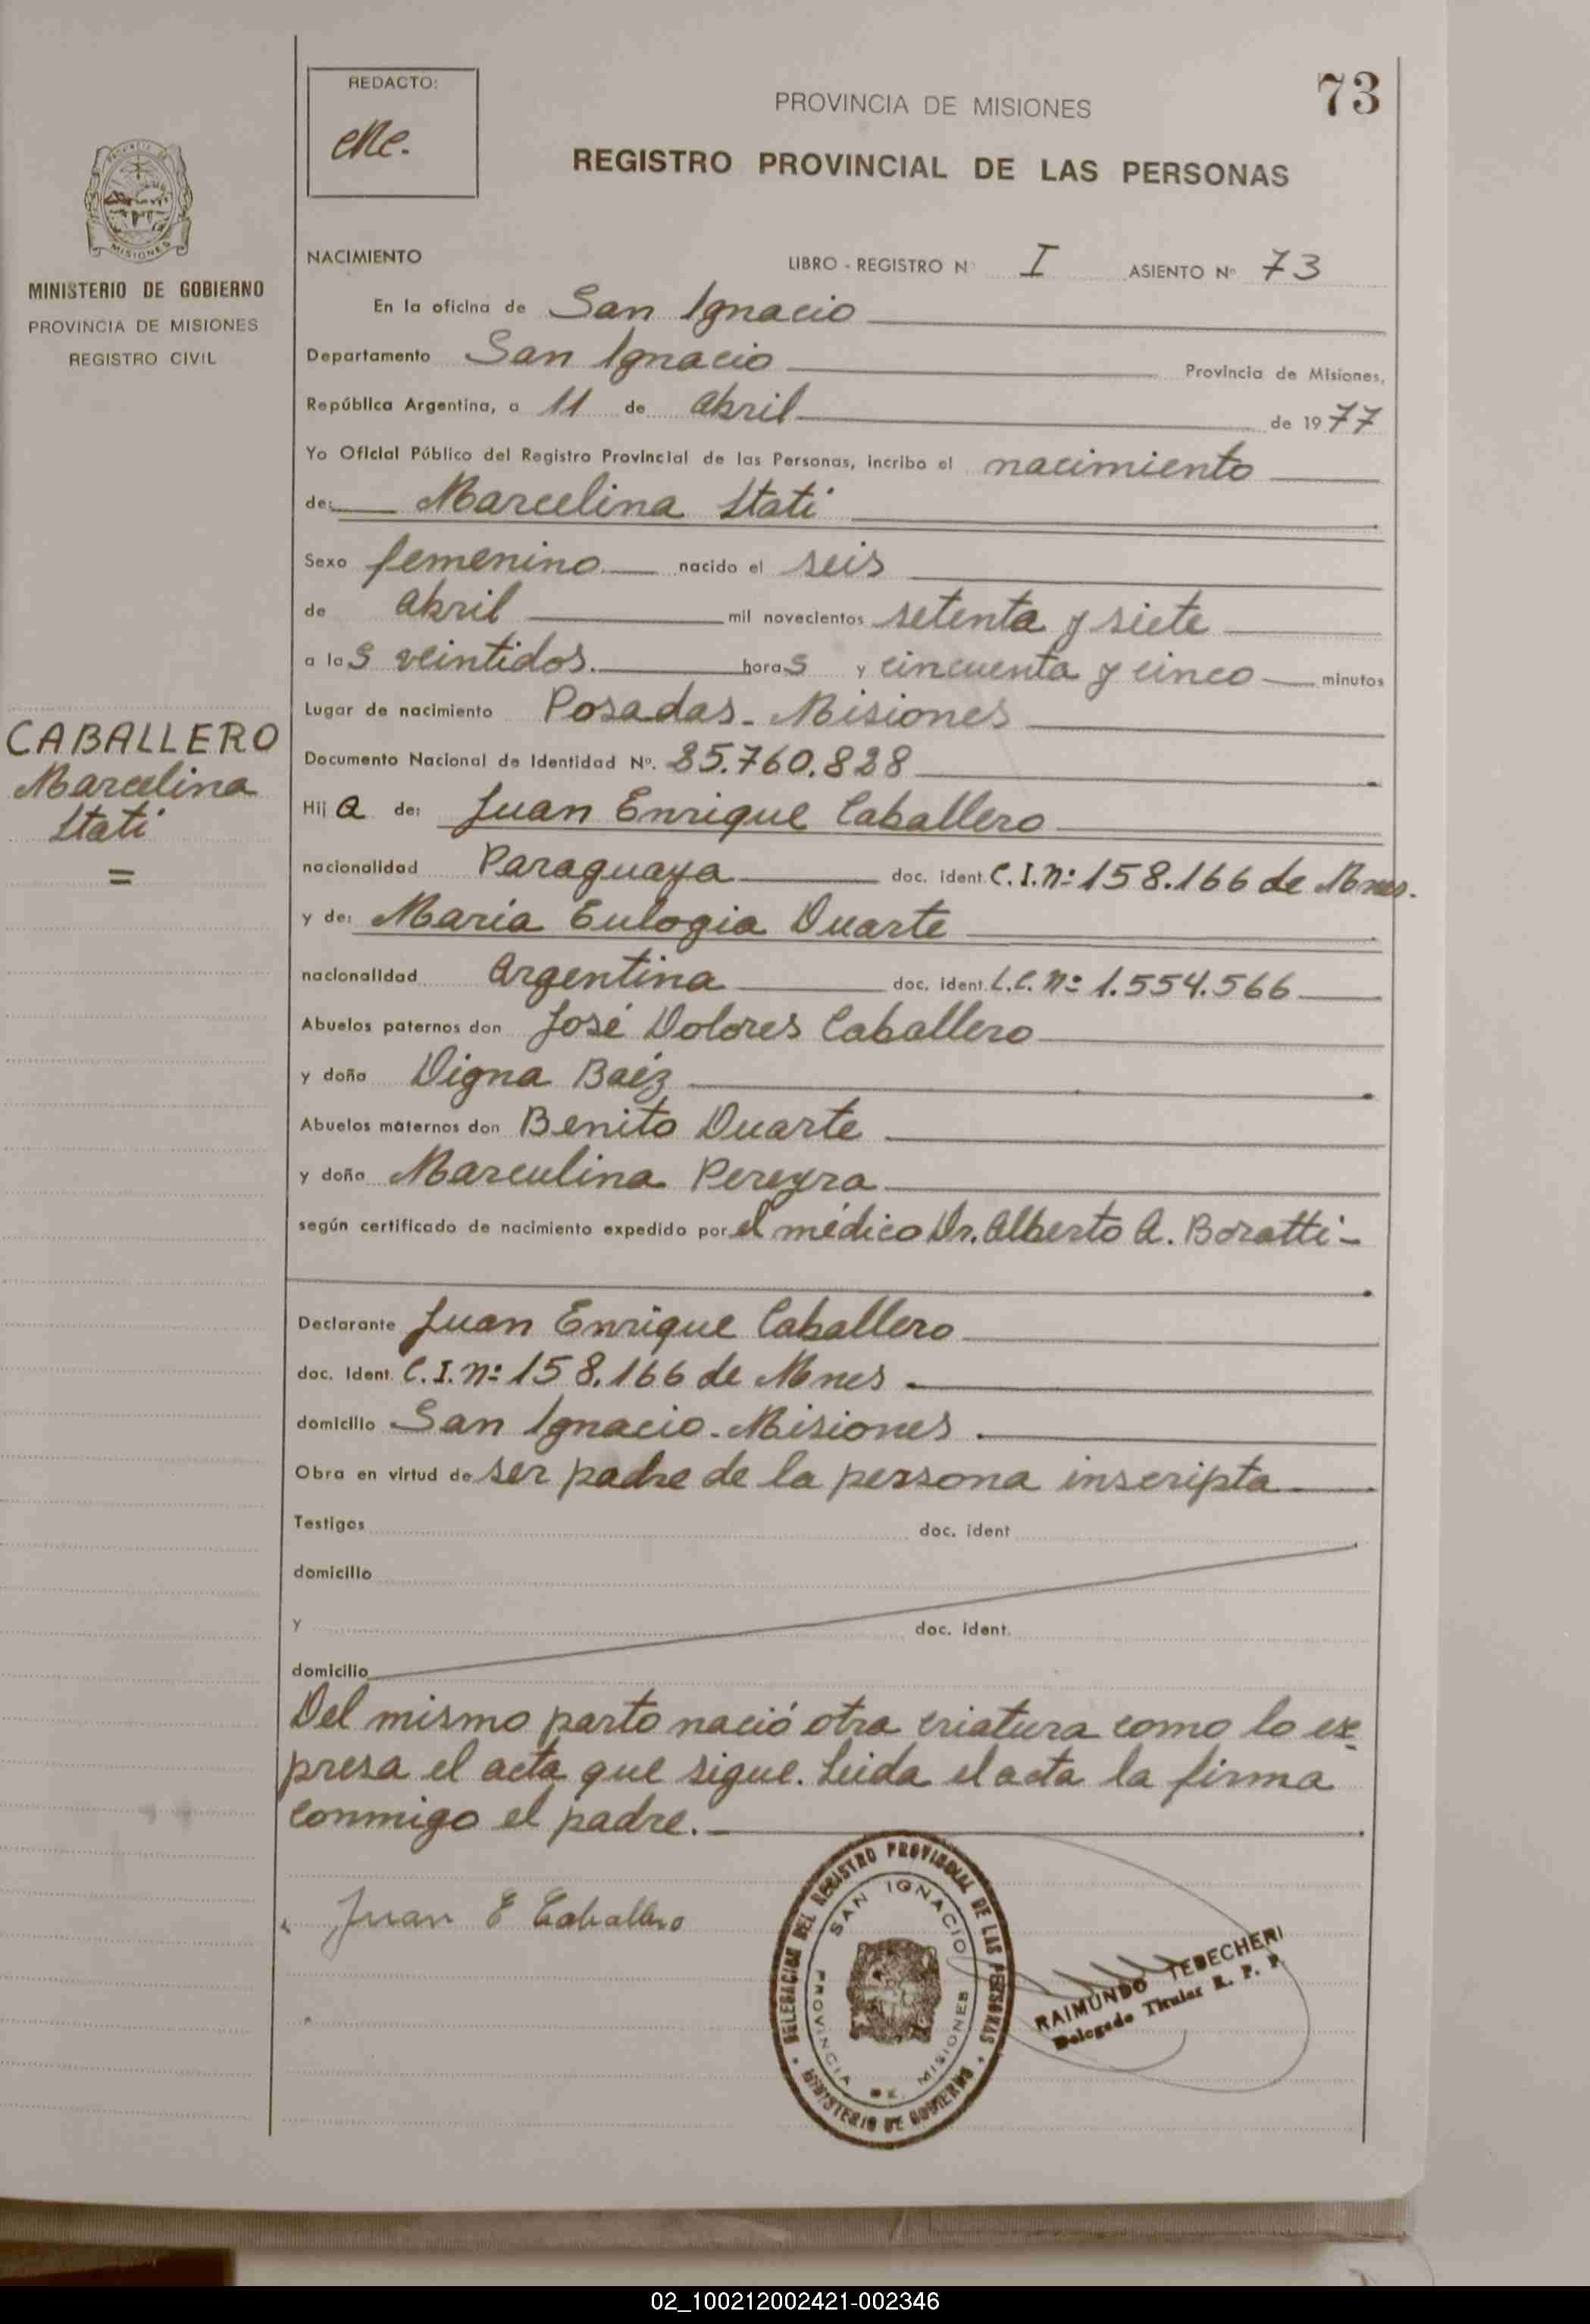 73
REDACTO:
PROVINCIA DE MISIONES
REGISTRO PROVINCIAL DE LAS PERSONAS
MISIONES
MINISTERIO DE GOBIERNO
PROVINCIA DE MISIONES
REGISTRO CIVIL
NACIMIENTO LIBRO - REGISTRO Nº I ASIENTO Nº 73
En la oficina de San Ignacio
Departamento San Ignacio Provincia de Misiones,
República Argentina, a 11 de abril de 1977
Yo Oficial Público del Registro Provincial de las Personas, incribo el nacimiento
de: Marcelina Stati
Sexo femenino nacido el seis
de abril mil novecientos setenta y siete
a las veintidos. horas y cincuenta y cinco minutos
Lugar de nacimiento Posadas - Misiones
CABALLERO
Marcelina
Stati
=
Documento Nacional de Identidad Nº. 25.760.828
Hija de: Juan Enrique Caballero
nacionalidad Paraguaya doc. ident. C.I.nº 158.166 de Mnes.
y de: Maria Eulogia Duarte
nacionalidad Argentina doc. ident. L.C. nº 1.554.566
Abuelos paternos don José Dolores Caballero
y doña Digna Baéz
Abuelos maternos don Benito Duarte
y doña Marculina Pereyra
según certificado de nacimiento expedido por el médico Dr. Alberto A. Boratti -
Declarante Juan Enrique Caballero
doc. Ident. C.I. nº 158.166 de Mnes.
domicilio San Ignacio - Misiones.
Obra en virtud de ser padre de la persona inscripta
Testigos doc. ident
domicilio
y doc. ident.
domicilio
Del mismo parto nació otra criatura como lo ex-
presa el acta que sigue. Leida el acta la firma
conmigo el padre.
Juan E Caballero
DELEGACION DEL REGISTRO PROVINCIAL DE LAS PERSONAS
MINISTERIO DE GOBIERNO
SAN IGNACIO
PROVINCIA DE MISIONES
RAIMUNDO TEDECHERI
Delegado Titular R. P. P.
02_100212002421-002346